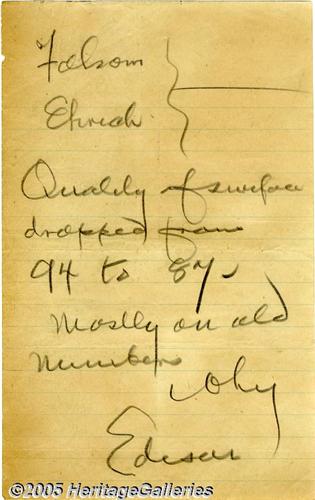 Folsom
Ehrich
Quality of surface
dropped from
94 to 87
Mostly on old
numbers
Why
Edison
©2005 HeritageGalleries